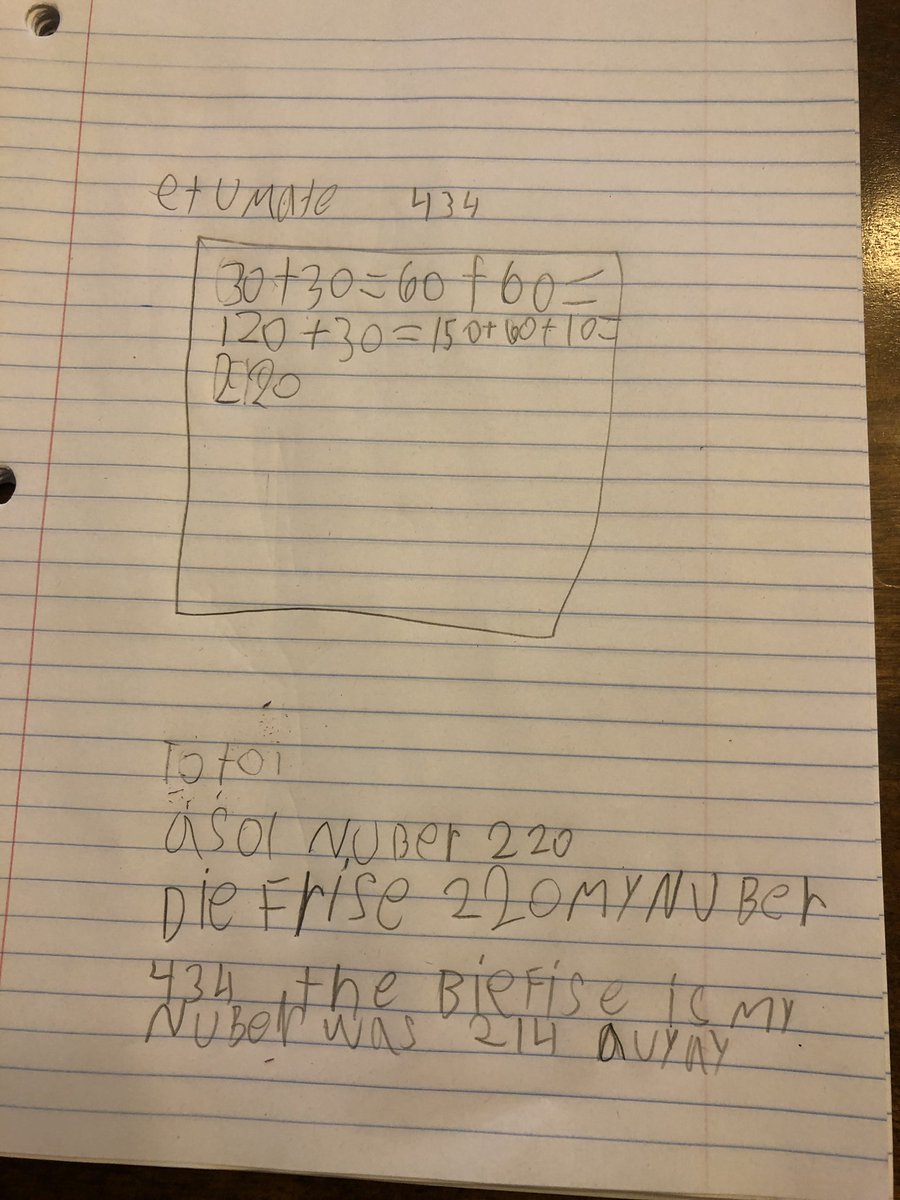 etUMate 434
30+30=60+60=
120+30=150+60+10=
220
Totol
asol NUBer 220
DieFrise 220 MY NUBer
434 the BieFise is MY
NUBer was 214 auyay